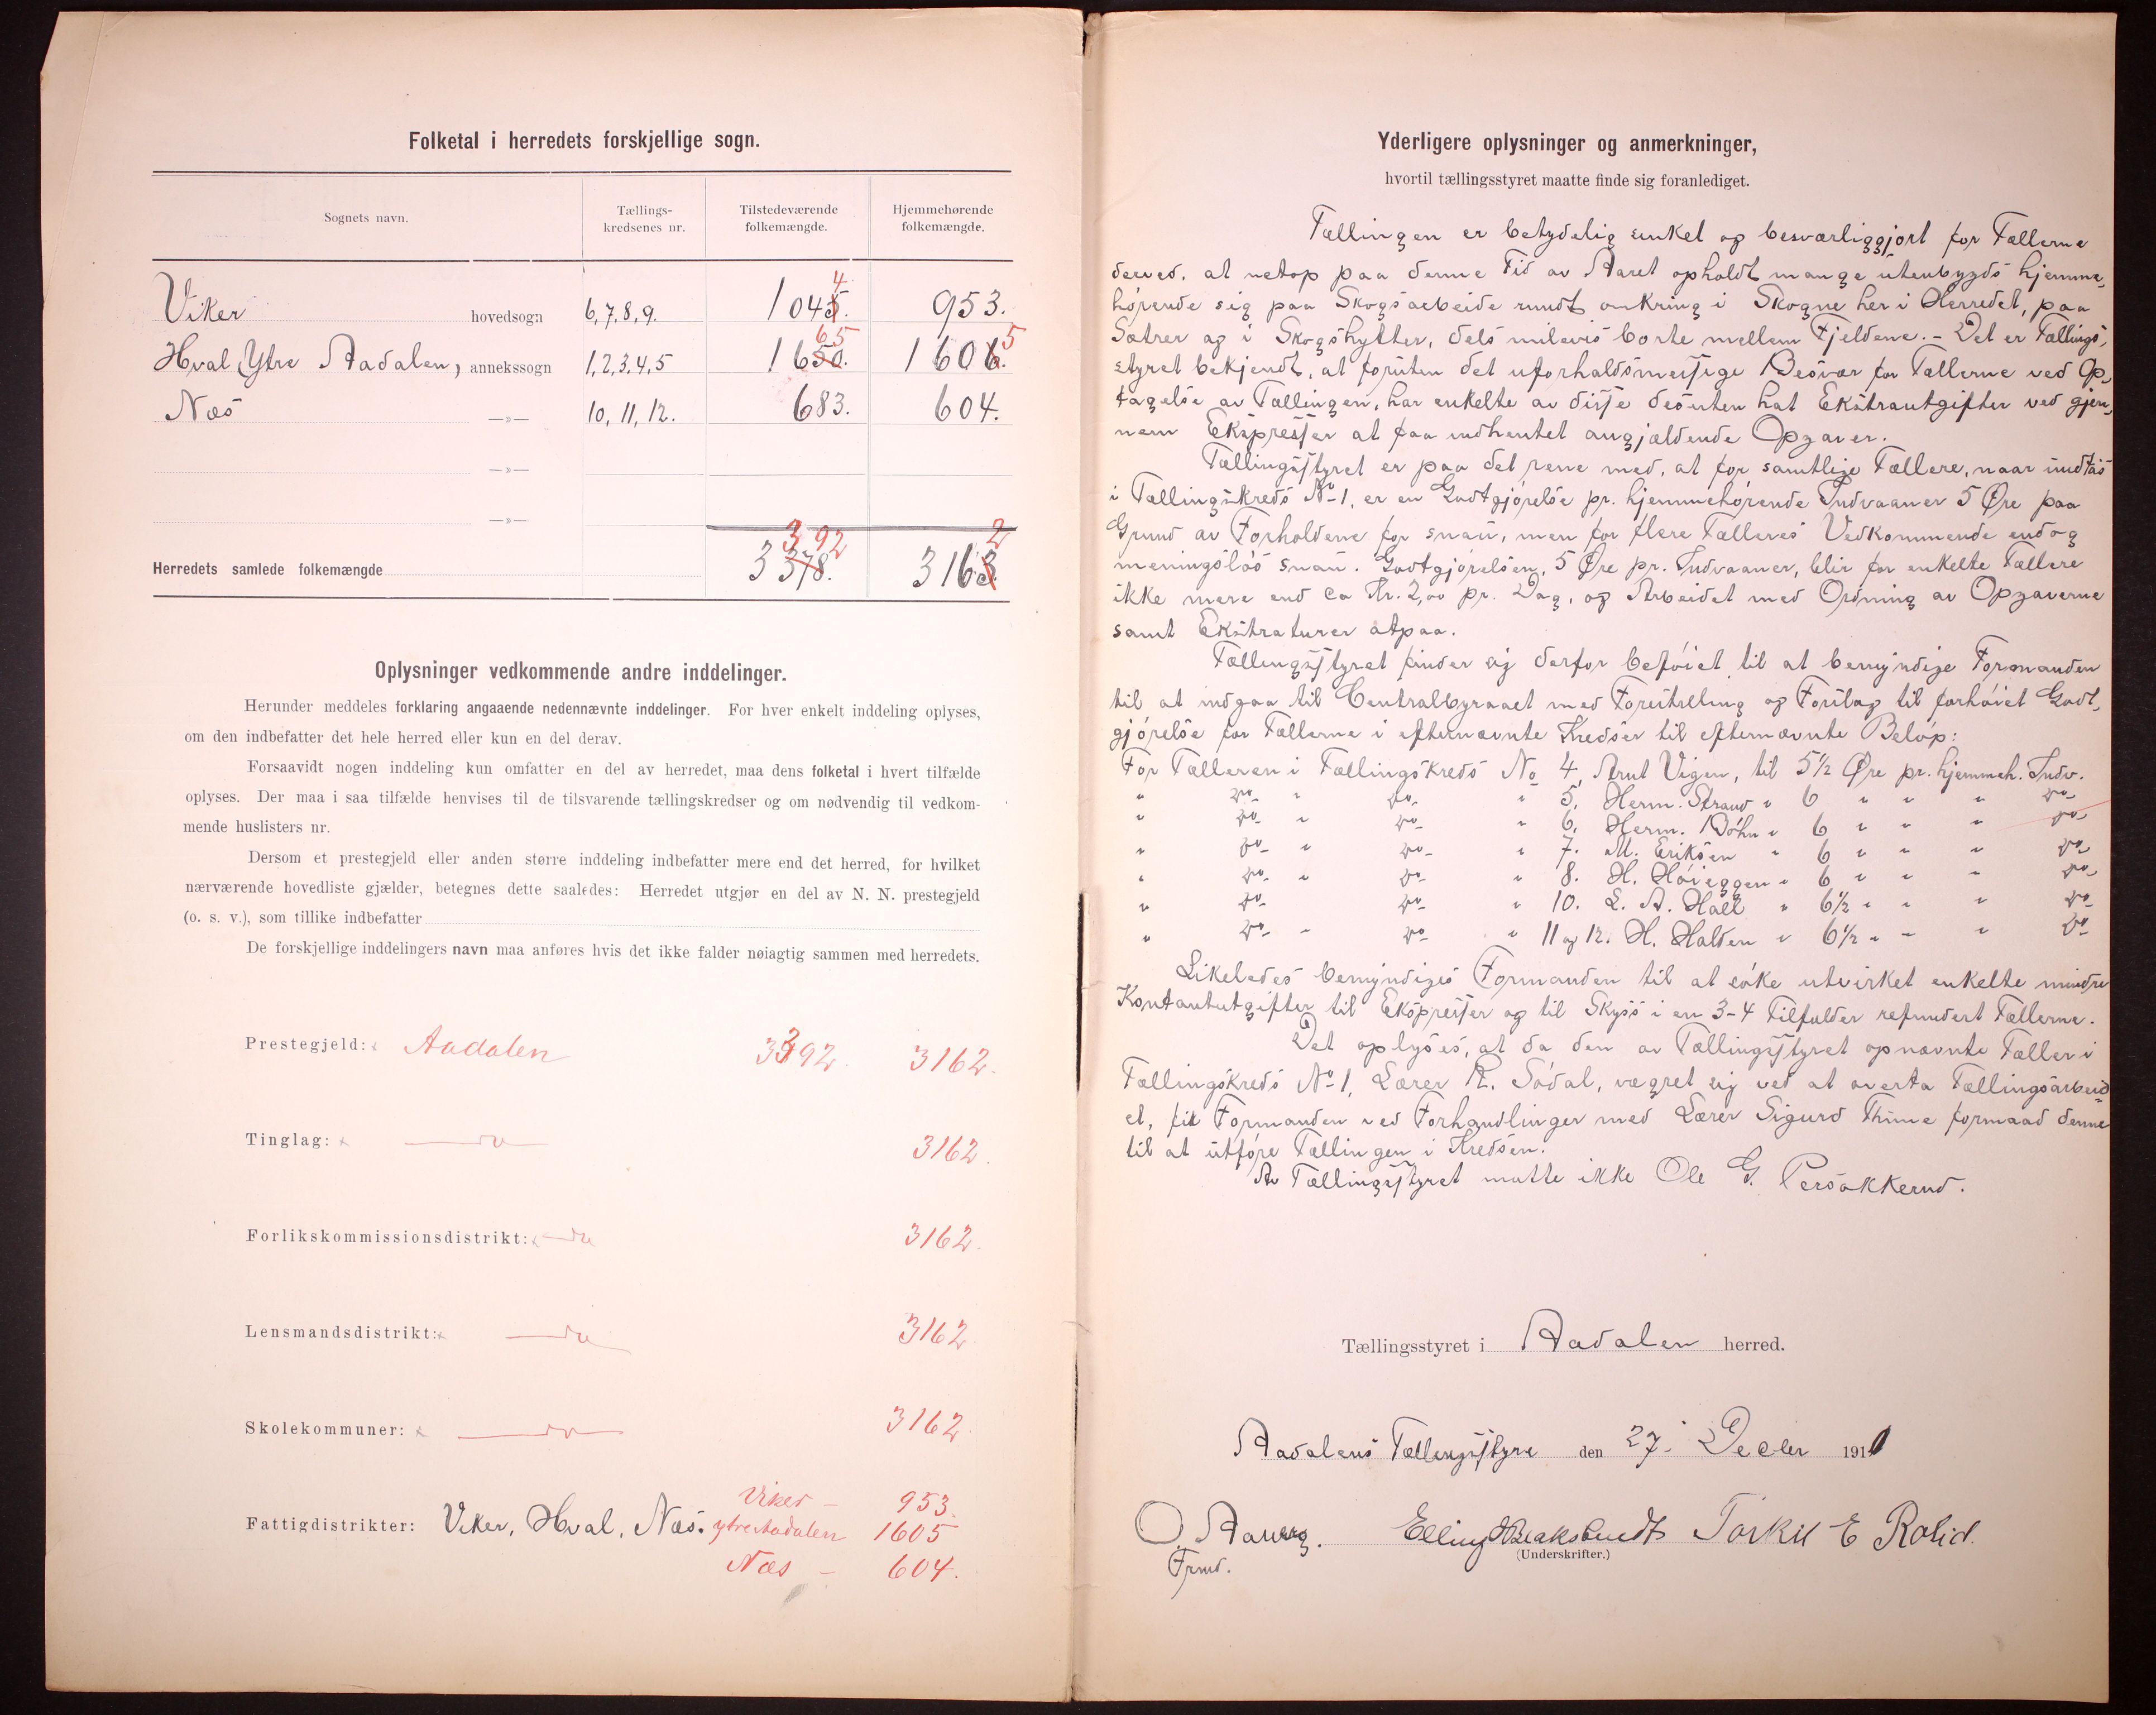 Folketal i herredets forskjellige sogn.
Sognets navn.
Tællings-
kredsenes nr.
Tilstedeværende
folkemængde.
Hjemmehørende
folkemængde.
Viker hovedsogn 6,7,8,9. 1045. 4 953.
Hval (Ytre Aadalen) annekssogn 1,2,3,4,5 1650. 65 1606. 5
Næs —»— 10, 11, 12. 683. 604.
—»—
—»—
3 92 2
Herredets samlede folkemængde 3378. 3163.
Oplysninger vedkommende andre inddelinger.
Herunder meddeles forklaring angaaende nedennævnte inddelinger. For hver enkelt inddeling oplyses,
om den indbefatter det hele herred eller kun en del derav.
Forsaavidt nogen inddeling kun omfatter en del av herredet, maa dens folketal i hvert tilfælde
oplyses. Der maa i saa tilfælde henvises til de tilsvarende tællingskredser og om nødvendig til vedkom-
mende huslisters nr.
Dersom et prestegjeld eller anden større inddeling indbefatter mere end det herred, for hvilket
nærværende hovedliste gjælder, betegnes dette saaledes: Herredet utgjør en del av N. N. prestegjeld
(o. s. v.), som tillike indbefatter
De forskjellige inddelingers navn maa anføres hvis det ikke falder nøiagtig sammen med herredets.
Prestegjeld: Aadalen 3392 3162.
Tinglag: do 3162.
Forlikskommissionsdistrikt: do 3162.
Lensmandsdistrikt: do 3162
Skolekommuner: do 3162
Fattigdistrikter: Viker, Hval, Næs. Viker – 953.
ytre Aadalen 1605
Næs – 604.
Yderligere oplysninger og anmerkninger,
hvortil tællingsstyret maatte finde sig foranlediget.
Tællingen er betydelig sinket og besværliggjort for Tællerne
derved, at netop paa denne Tid av Aaret opholdt mange utenbygds hjemme,
hörende sig paa Skogsarbeide rundt omkring i Skogne her i Herredet, paa
Sætrer og i Skogshytter, dels milevis borte mellem Fjeldene. – Det er Tællings,
styret bekjendt, at foruten det uforholdsmessige Besvær for Tællerne ved Op,
tagelse av Tællingen, har enkelte av disse desuten hat Ekstrautgifter ved gjen,
nem Ekspresser at faa indhentet angjældende Opgaver.
Tællingsstyret er paa det rene med, at for samtlige Tællere, naar undtas
i Tællingskreds No 1, er en Godtgjörelse pr. hjemmehörende Indvaaner 5 Øre paa
Grund av Forholdene for snau, men for flere Tælleres Vedkommende endog
meningslös snau. Godtgjörelsen, 5 Øre pr. Indvaaner, blir for enkelte Tællere
ikke mere end ca Kr. 2,00 pr. Dag, og Arbeidet med Ordning av Opgaverne
samt Ekstraturer atpaa.
Tællingsstyret finder sig derfor beföiet til at bemyndige Formanden
til at indgaa til Centralbyraaet med Forestilling og Forslag til forhöiet Godt,
gjörelse for Tællerne i efternævnte Kredser til efternævnte Belöp:
For Tælleren i Tællingskreds No 4, Arnt Vigen, til 5½ Øre pr. hjemmeh. Indv.
" Do " Do " 5, Herm. Strand " 6 " " " Do
" Do " Do " 6. Herm. Böhn " 6 " " " Do
" Do " Do " 7. M. Eriksen " 6 " " " Do
" Do " Do " 8. H. Höieggen " 6 " " " Do
" Do Do " 10. L. A. Hall " 6½ " " " Do
" Do " Do " 11 og 12. H. Halden " 6½ " " " Do
Likeledes bemyndiges Formanden til at söke utvirket enkelte mindre
Kontantutgifter til Ekspresser og til Skyss i en 3–4 Tilfælder refundert Tællerne.
Det oplyses, at da den av Tællingsstyret opnævnte Tæller i
Tællingskreds No 1, Lærer R. Södal, vægret sig ved at overta Tællingsarbeid=
et, fik Formanden ved Forhandlinger med Lærer Sigurd Thime formaad denne
til at utföre Tællingen i Kredsen.
Av Tællingsstyret mötte ikke Ole G. Persökkerud.
Tællingsstyret i Aadalen herred.
Aadalens Tællingsstyre den 27. Decbr 1910
O. Elling Torkil E Rolid.
(Underskrifter.)
Frmd.